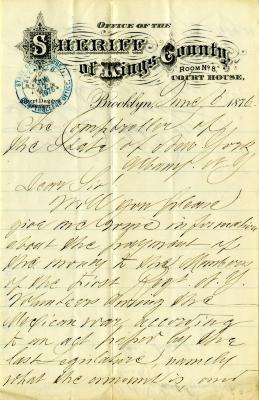 OFFICE OF THE
SHERIFF
of Kings County
ROOM No 8
COURT HOUSE,
Brooklyn, June 1876
The Comptroller of
the State of New York
Albany N.Y.
Dear Sir
Will you please
give me some information
about the payment of
the money to the Members
of the First Regt N.Y.
Volunteers during the
Mexican war, according
to an act passed by the
last Legislature, namely
what the amount is and